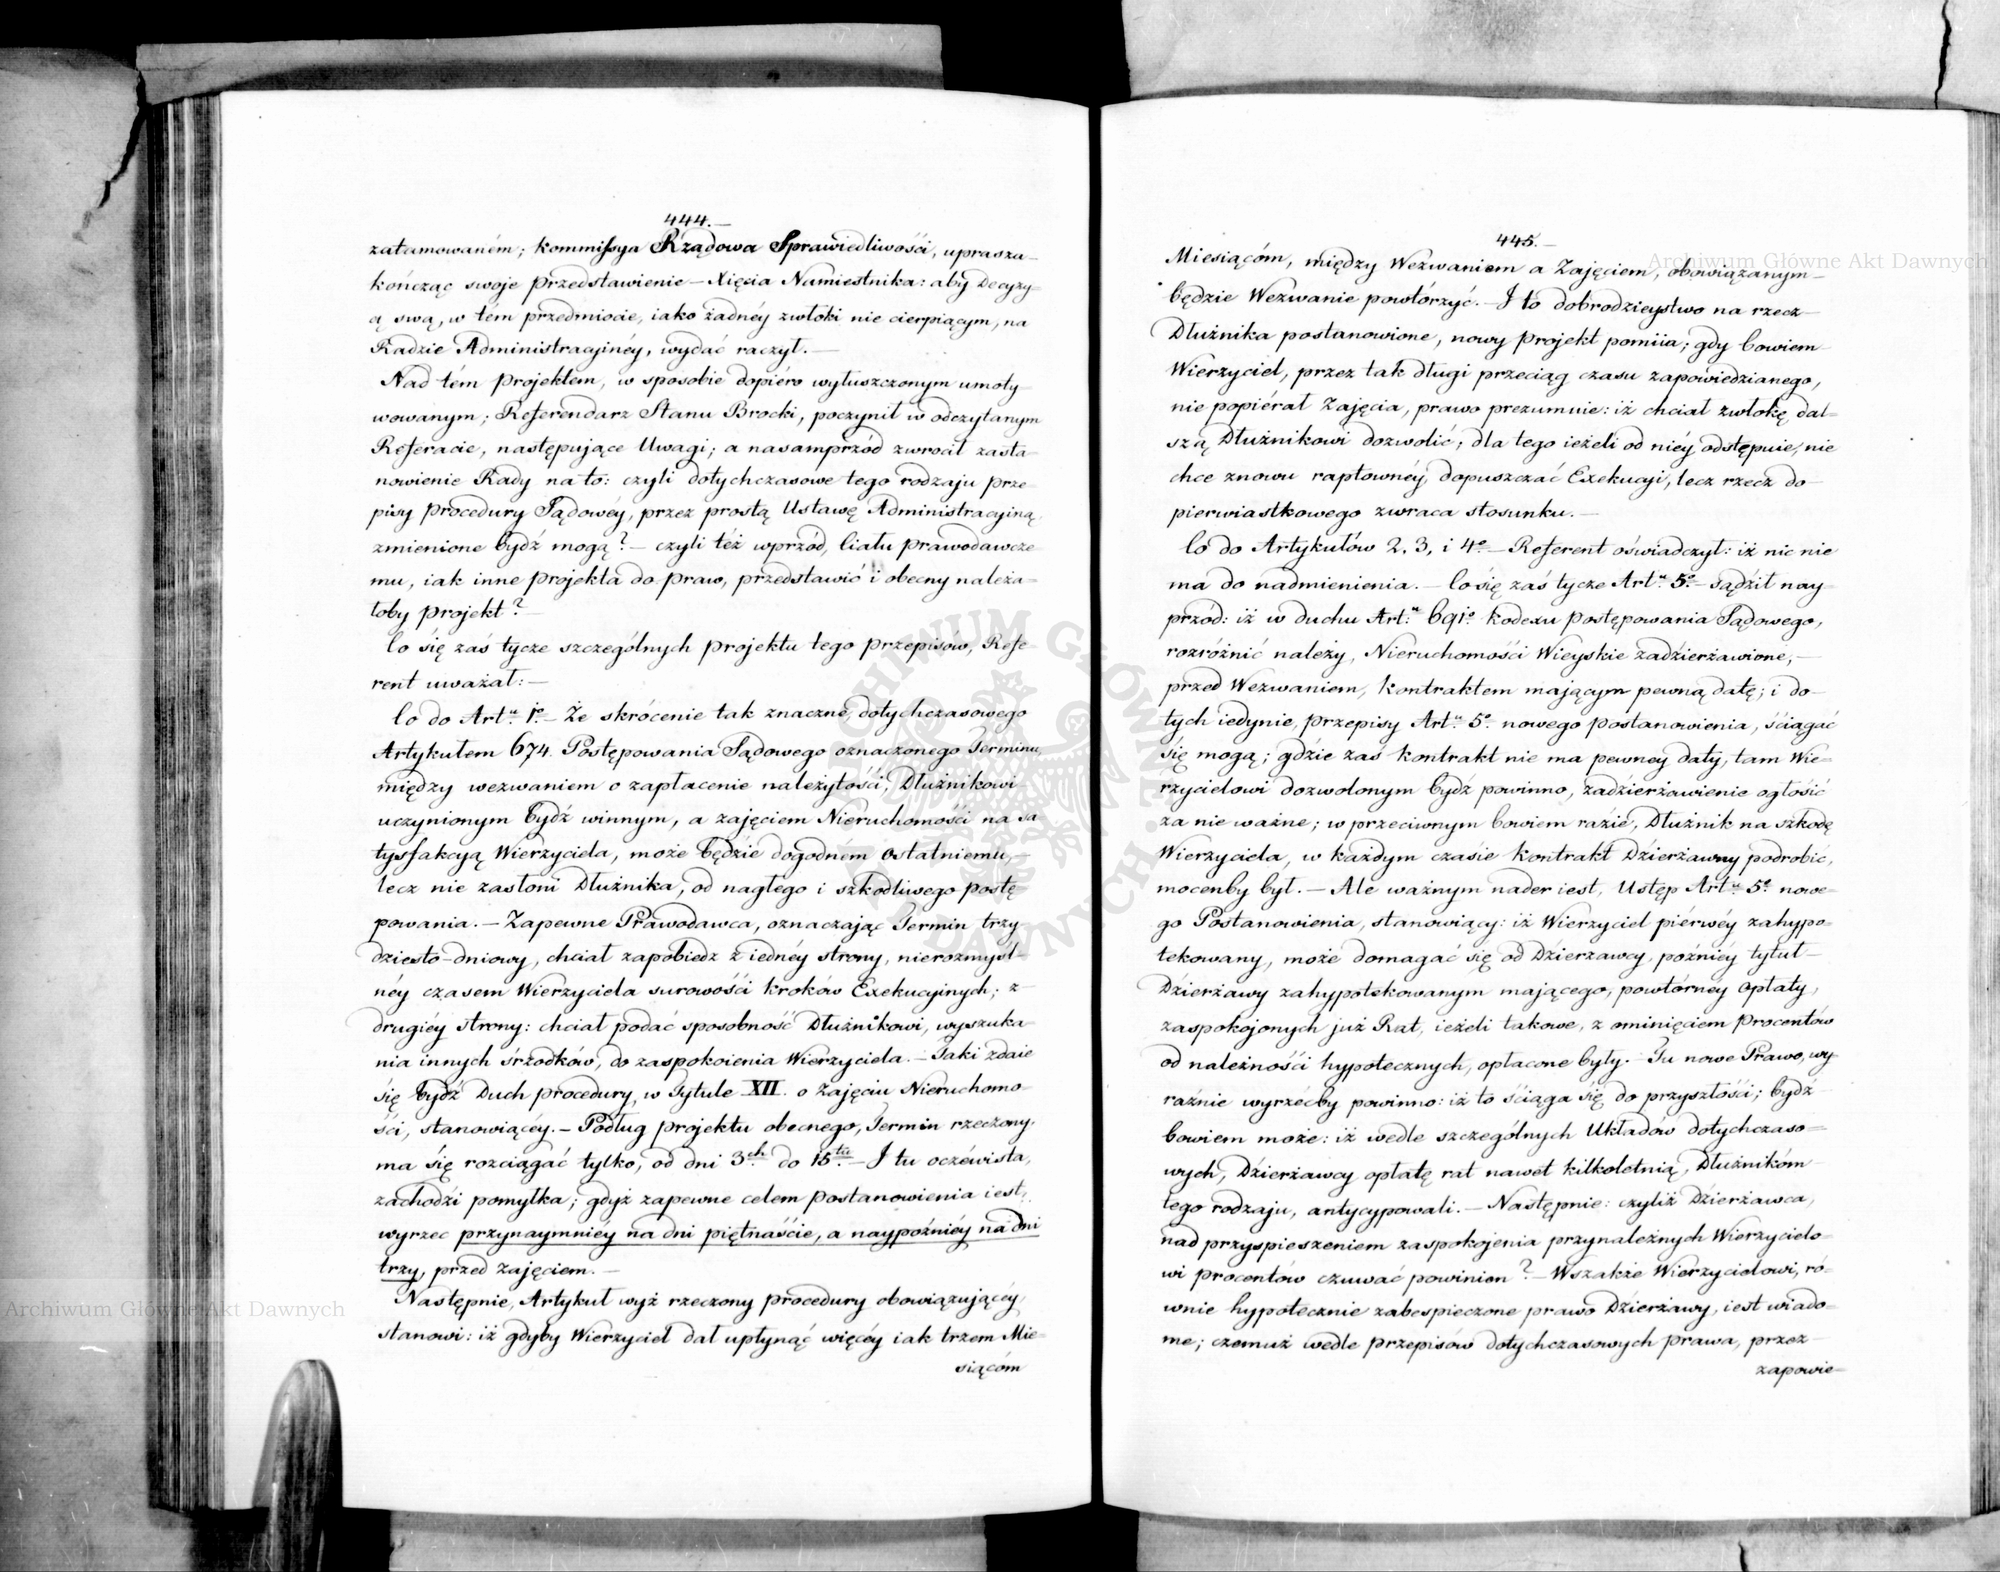 444.—
zatamowaném; Kommissya Rządowa Sprawiedliwośći, uprasza-
kończąc swoje przedstawienie — Xięcia Namiestnika: aby Decyzy-
ą swą, w tem przedmiocie, iako żadnéy zwłoki nie cierpiącym, na
Radzie Administracyinéy, wydać raczył.—
Nad tém projektem, w sposobie dopiéro wyłuszczonym umoty-
wowanym; Referendarz Stanu Brocki, poczynił w odczytanym
Referacie, następujące Uwagi; a nasamprzód zwrócił zasta-
nowienie Rady na to: czyli dotychczasowe tego rodzaju prze-
pisy procedury Sądowéy, przez prostą Ustawę Administracyiną,
zmienione bydź mogą? — czyli też wprzód, Ciału prawodawcze-
mu, iak inne projekta do praw, przedstawić i obecny należa-
łoby projekt?—
Co się zaś tycze szczególnych projektu tego przepisów, Refe-
rent uważał:—
Co do Art.u 1.o— Że skrócenie tak znaczne, dotychczasowego
Artykułem 674. Postępowania Sądowego oznaczonego Terminu,
między wezwaniem o zapłacenie należytośći, Dłużnikowi
uczynionym bydź winnym, a zajęciem Nieruchomośći na sa-
tysfakcyą Wierzyciela, może będzie dogodném ostatniemu,—
lecz nie zasłoni Dłużnika, od nagłego i szkodliwego postę-
powania.— Zapewne Prawodawca, oznaczając Termin trzy-
dziesto-dniowy, chciał zapobiedz z iednéy strony, nierozmyśl-
néy czasem Wierzyciela surowośći kroków Exekucyinych; z-
drugiéy strony: chciał podać sposobność Dłużnikowi, wyszuka-
nia innych śrzodków, do zaspokoienia Wierzyciela.— Taki zdaie
się bydź Duch procedury, w Tytule XII. o Zajęciu Nieruchomo-
śći, stanowiącéy.— Podług projektu obecnego, Termin rzeczony,
ma się rozciągać tylko, od dni 3ch. do 15tu.— I tu oczéwista,
zachodzi pomyłka; gdyż zapewne celem postanowienia iest,
wyrzec przynaymniéy na dni piętnaśćie, a naypoźniéy na dni
trzy, przed zajęciem.—
Następnie, Artykuł wyż rzeczony procedury obowiązującéy,
stanowi: iż gdyby Wierzyciel dał upłynąć więcéy iak trzem Mie-
siącóm
445.—
Miesiącóm, między Wezwaniem a Zajęciem, obowiązanym—
będzie Wezwanie powtórzyć.— I to dobrodzieystwo na rzecz—
Dłużnika postanowione, nowy projekt pomiia; gdy bowiem
Wierzyciel, przez tak długi przeciąg czasu zapowiedzianego,
nie popiérał Zajęcia, prawo prezumuie: iż chciał zwłokę dal-
szą, Dłużnikowi dozwolić; dla tego ieżeli od niéy odstępuie, nie
chce znowu raptownéy, dopuszczać Exekucyi, lecz rzecz do-
pierwiastkowego zwraca stosunku.—
Co do Artykułów 2. 3, i 4o— Referent oświadczył: iż nic nie
ma do nadmienienia.— Co się zaś tycze Art.u 5.o— sądził nay-
przód: iż w duchu Art.u 691o Kodexu postępowania Sądowego,
rozróżnić należy, Nieruchomośći Wieyskie zadzierżawione,—
przed Wezwaniem, kontraktem mającym pewną datę; i do-
tych iedynie, przepisy Art.u 5.o nowego postanowienia, śćiągać
się mogą; gdzie zaś kontrakt nie ma pewney daty, tam Wie-
rzycielowi dozwolonym bydź powinno, zadzierżawienie ogłośić
za nie ważne; w przeciwnym bowiem razie, Dłużnik na szkodę
Wierzyciela, w każdym czasie kontrakt Dzierżawny podrobić,
mocenby był.— Ale ważnym nader iest, Ustęp Art.u 5.o nowe-
go Postanowienia, stanowiący: iż Wierzyciel piérwéy zahypo-
tekowany, może domagać się od Dzierzawcy, późniéy tytuł—
Dzierżawy zahypotekowanym mającego, powtórney opłaty,
zaspokojonych już Rat, ieżeli takowe, z ominięciem procentów
od należnośći hypotecznych, opłacone były.— Tu nowe Prawo, wy-
raźnie wyrzećby powinno: iż to śćiąga się do przyszłośći; bydź
bowiem może: iż wedle szczególnych Układów dotychczaso-
wych, Dzierżawcy opłatę rat nawet kilkoletnią, Dłużnikóm
tego rodzaju, antycypowali.— Następnie: czyliż Dzierżawca,
nad przyspieszeniem zaspokojenia przynależnych Wierzycielo-
wi procentów czuwać powinien?— Wszakże Wierzycielowi, ró-
wnie hypotecznie zabespieczone prawo Dzierżawy, iest wiado-
me; czemuż wedle przepisów dotychczasowych prawa, przez—
zapowie-
Archiwum Główne Akt Dawnych
Archiwum Główne Akt Dawnych
ARCHIWUM GŁÓWNE AKT DAWNYCH